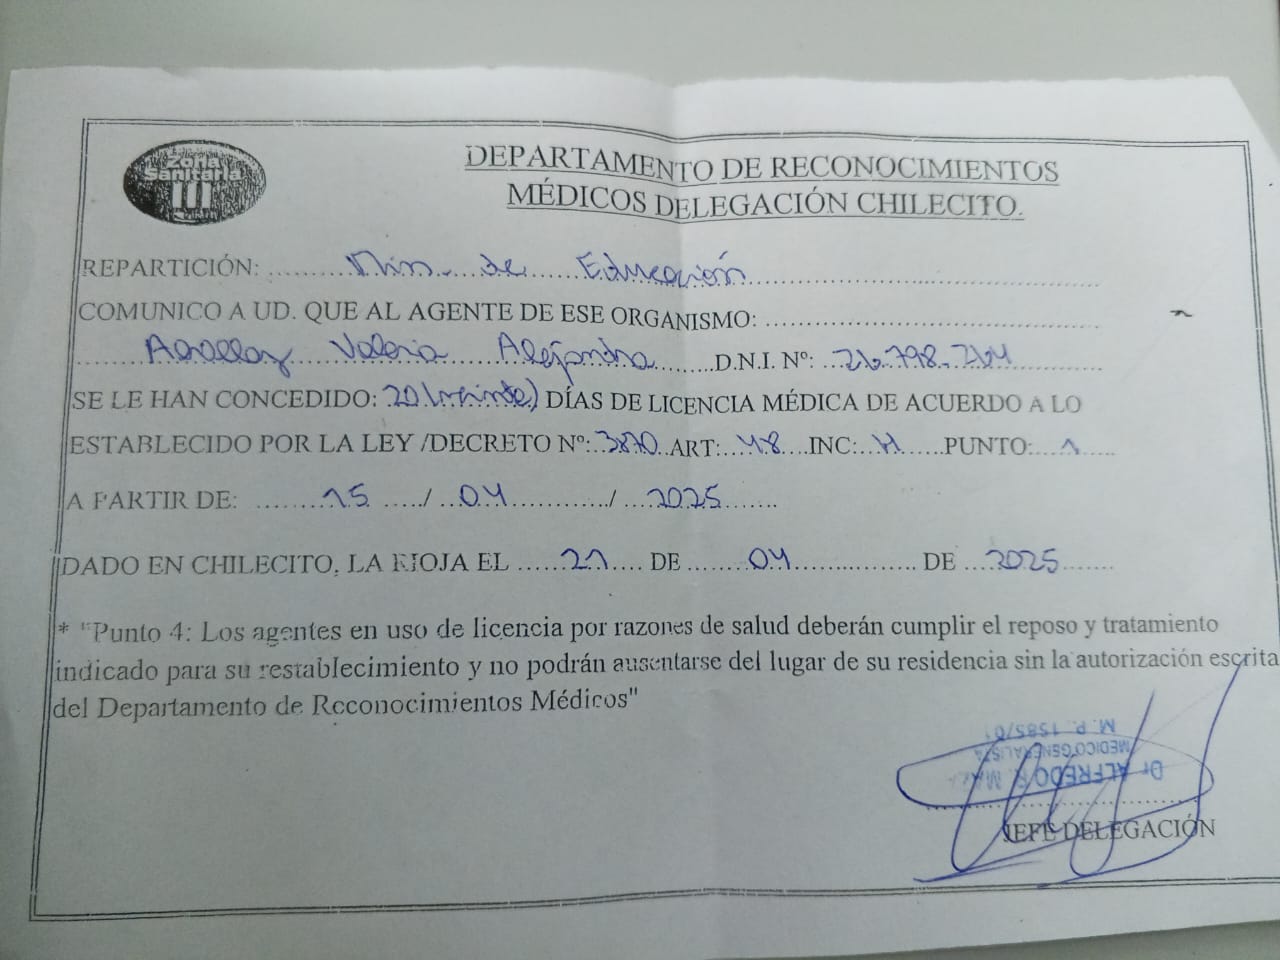 Zona
Sanitaria
III
DEPARTAMENTO DE RECONOCIMIENTOS
MÉDICOS DELEGACIÓN CHILECITO.
REPARTICIÓN: Min. de Educación
COMUNICO A UD. QUE AL AGENTE DE ESE ORGANISMO:
Valeria Alejandra D.N.I. Nº: 26.798.264
SE LE HAN CONCEDIDO: 20 (veinte) DÍAS DE LICENCIA MÉDICA DE ACUERDO A LO
ESTABLECIDO POR LA LEY /DECRETO Nº: 3870 ART: 48 INC: H PUNTO: 1
A PARTIR DE: 15 / 04 / 2025
DADO EN CHILECITO, LA RIOJA EL 21 DE 04 DE 2025
* "Punto 4: Los agentes en uso de licencia por razones de salud deberán cumplir el reposo y tratamiento
indicado para su restablecimiento y no podrán ausentarse del lugar de su residencia sin la autorización escrita
del Departamento de Reconocimientos Médicos"
Dr ALFREDO
MEDICO GENERALISTA
M. P. 1585/01
JEFE DELEGACIÓN